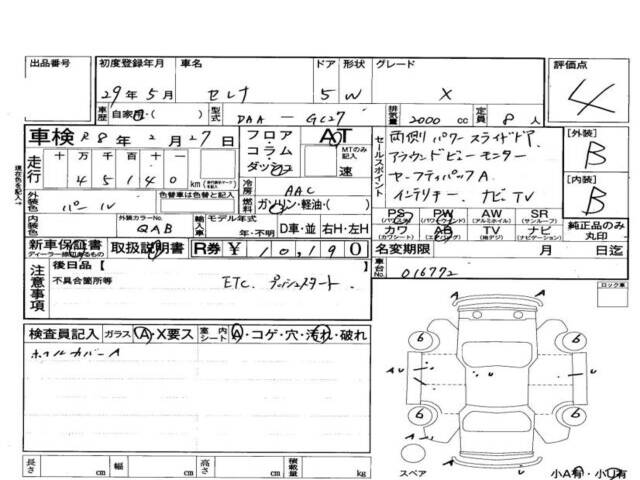 出品番号 初度登録年月 車名 ドア 形状 グレード 評価点
29年5月 セレナ 5 W X 4
車歴 自家用・( ) 型式 DAA-GC27 排気量 2000 cc 定員 8人
車検 R8年2月27日
フロア・コラム・ダッシュ AT MTのみ記入 速
セールスポイント
両側パワースライドドア.
アラウンドビューモニター
セーフティパックA
インテリキー. ナビTV
[外装] B
[内装] B
走行 十 万 千 百 十
45140 km
現在色を記入→
外装色 パール 色替車は色替と記入
冷房 AAC
燃料 ガソリン・軽油・( )
内装色 外装カラーNo. QAB
輸入車 モデル年式 年・不明 D車・並 右H・左H
PS (パワステ) PW (パワーウィンド) AW (アルミホイル) SR (サンルーフ)
カワ (カワシート) AB (エアバッグ) TV (純デジ) ナビ (ナビゲーション)
純正品のみ丸印
新車保証書 ディーラー捺印あるもの 取扱説明書 R券 ¥10,190
名変期限 月 日迄
車台No. 016772
注意事項 後日品[ ]
不具合箇所等 ETC. プッシュスタート.
ロック車
検査員記入 ガラス A・X要ス 室内シート A・コゲ・穴・汚れ・破れ
ホイルカバーA
A
6 6
A U U A U
6 6
A U
スペア
小A有・小U有
長さ cm 幅 cm 高さ cm 積載量 kg